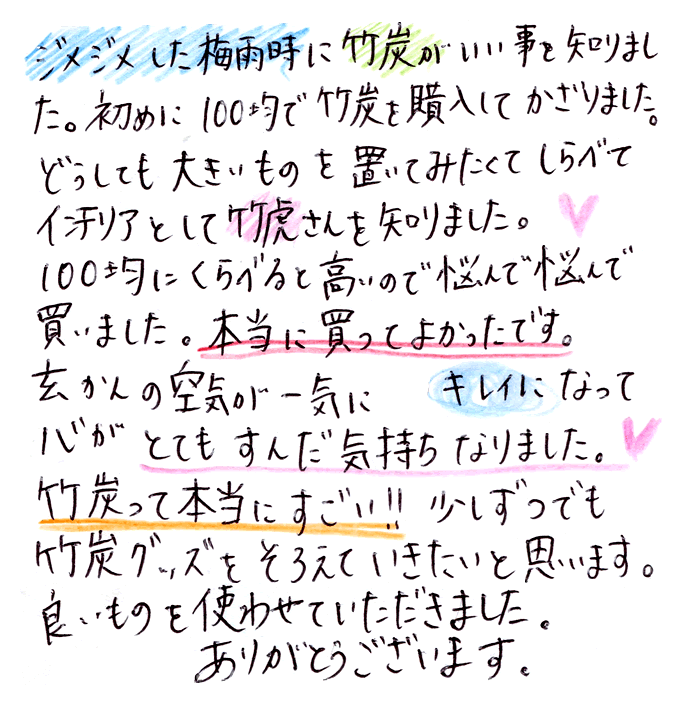 ジメジメした梅雨時に竹炭がいい事を知りまし
た。初めに100均で竹炭を購入してかざりました。
どうしても大きいものを置いてみたくてしらべて
インテリアとして竹虎さんを知りました。
100均にくらべると高いので悩んで悩んで
買いました。本当に買ってよかったです。
玄かんの空気が一気にキレイになって
心がとてもすんだ気持ちなりました。
竹炭って本当にすごい!!少しずつでも
竹炭グッズをそろえていきたいと思います。
良いものを使わせていただきました。
ありがとうございます。